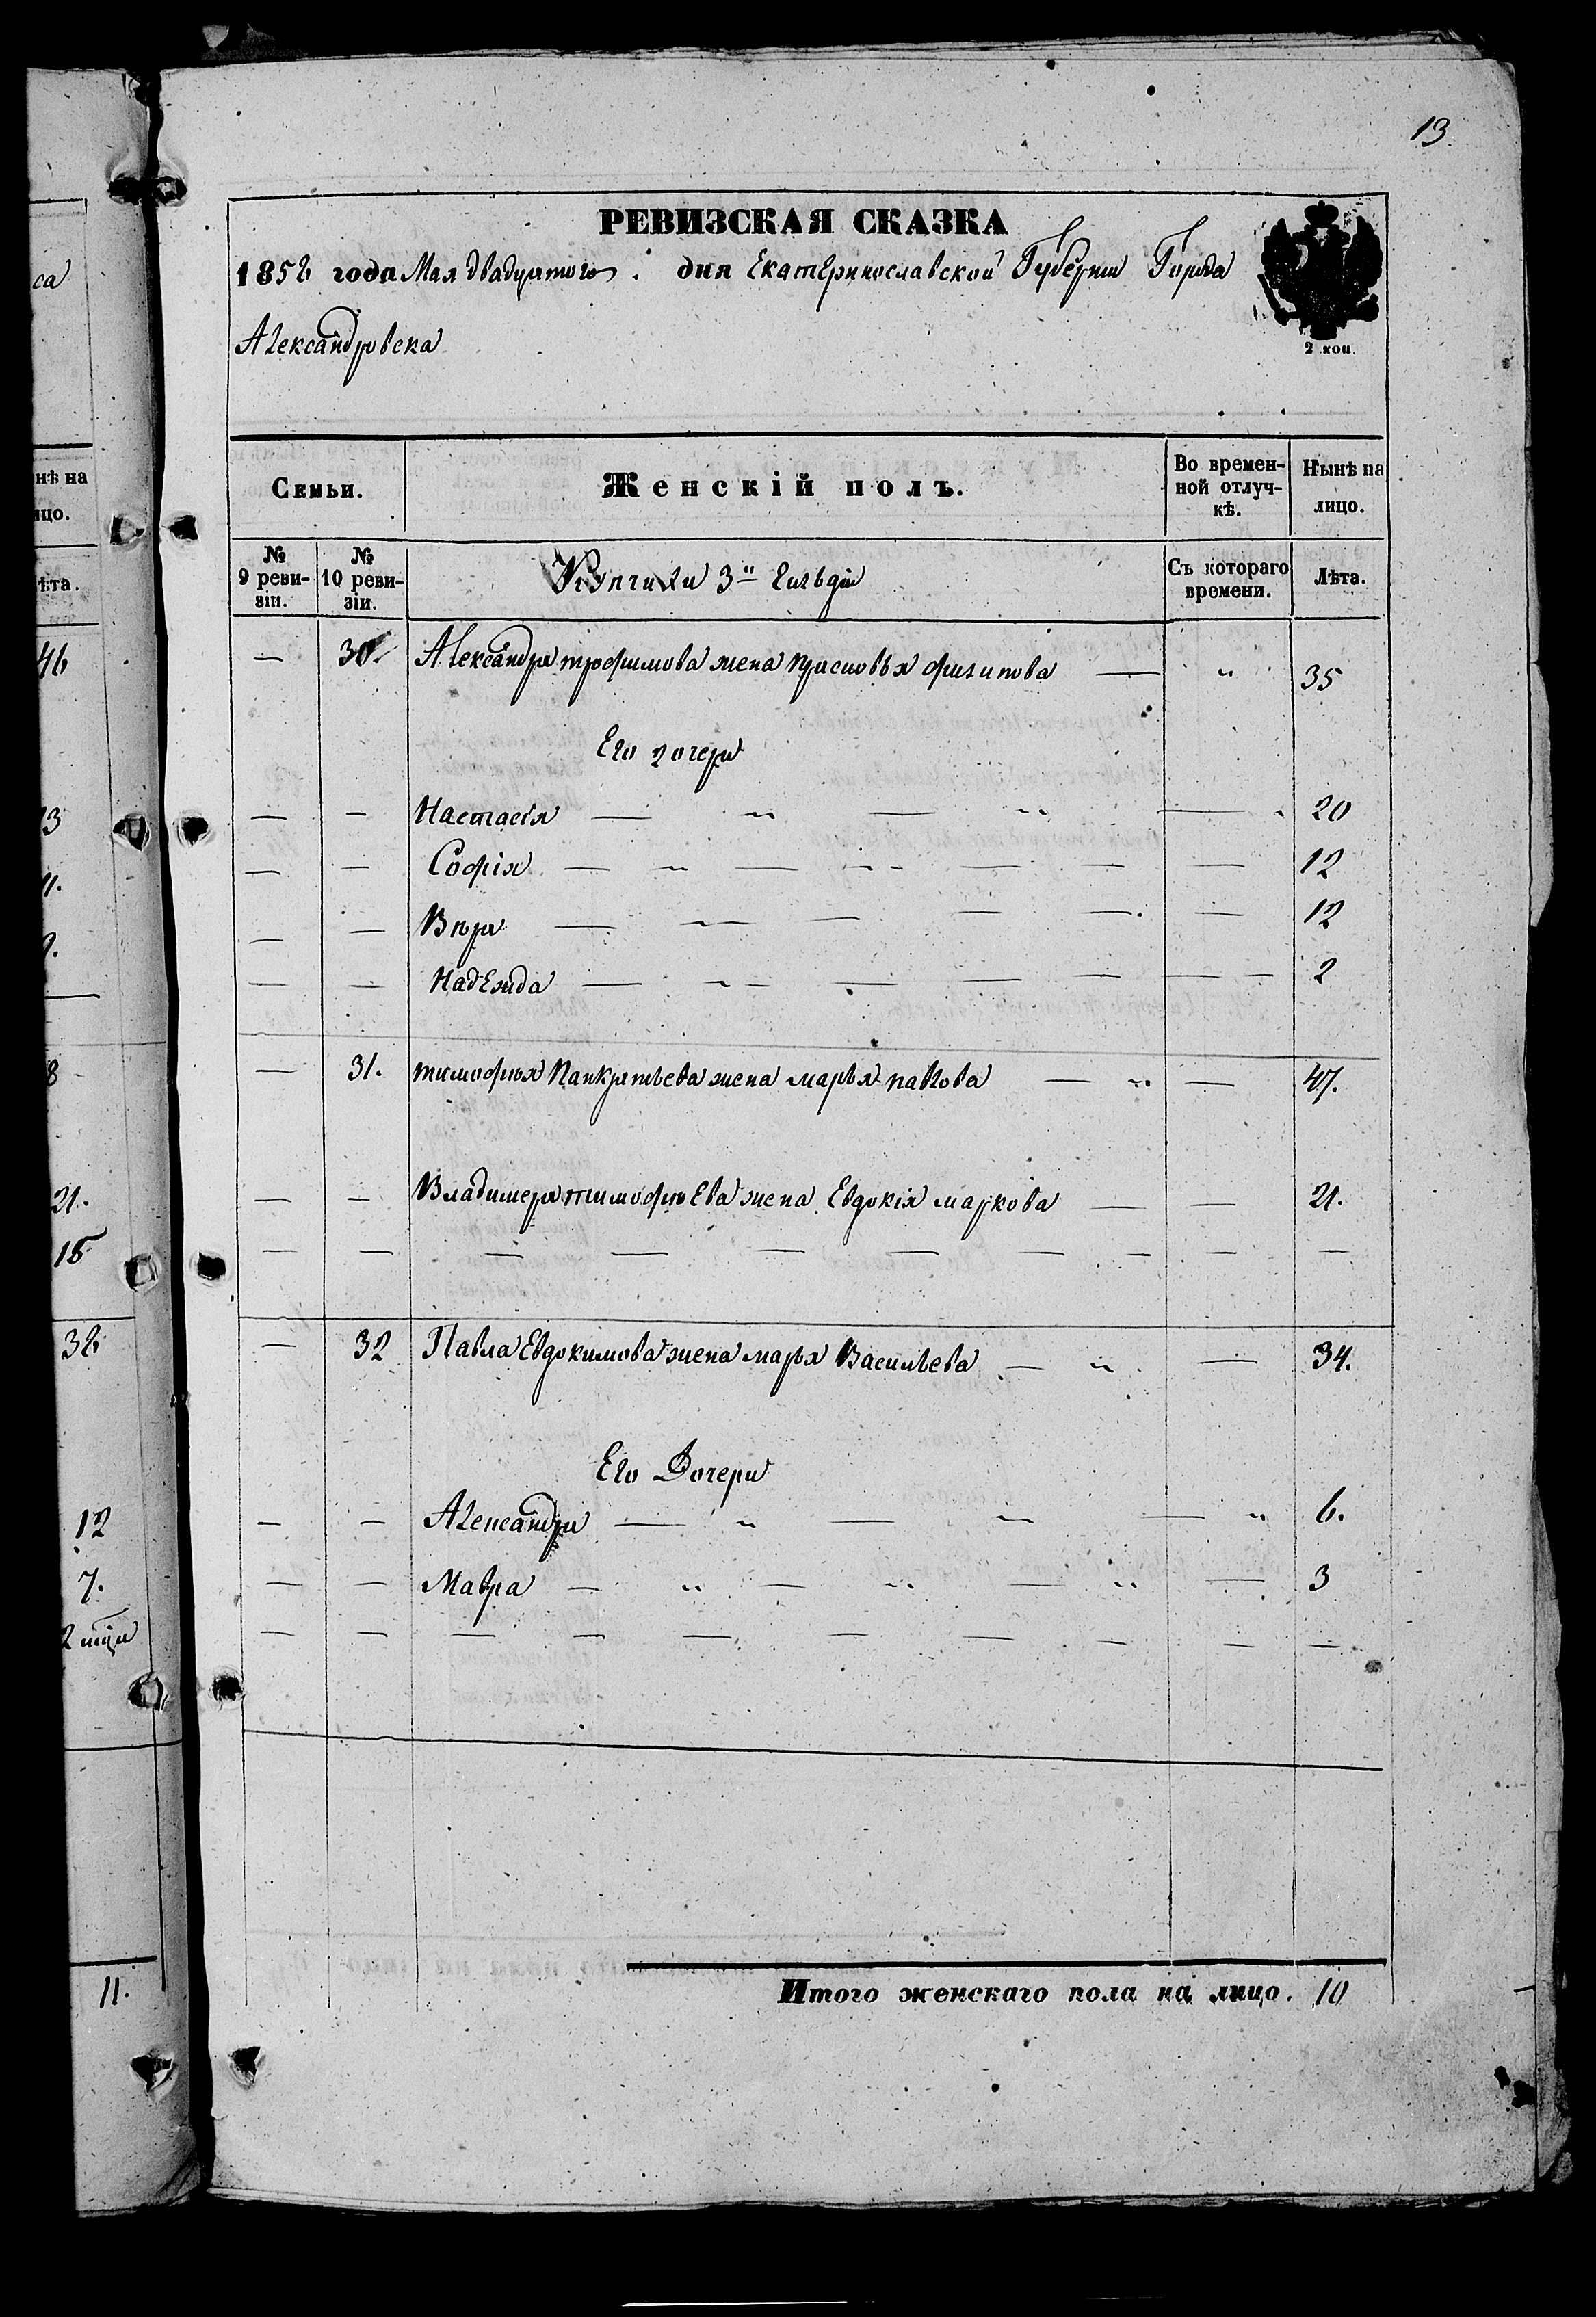 са
нѣ на
ицо.
ѣта.
46
13
11.
8
21.
15
38
12
7.
11.
13.
РЕВИЗСКАЯ СКАЗКА
1858 года Мая двадцатого дня Екатеринославской Губерніи Города
Александровска
2 коп.
Семьи.
Женскій полъ.
Во времен-
ной отлуч-
кѣ.
Нынѣ на
лицо.
№
9 реви-
зіи.
№
10 реви-
зіи.
Купчихи 3й гильдіи
Съ котораго
времени.
Лѣта.
— 30. Александра трофимова жена филипова — " 35
Его дочери
— — Настасія — " — " — 20
— — Софія — " — " — — — 12
— — Вѣра — " — — — — 12
— — Надежда — " — — — — — 2
— 31. тимофѣя Панкратьева жена марья павлова — " — 47.
— — Владимера тимофѣева жена Евдокія маркова — — 21.
— — — — — — — — — —
— 32 Павла Евдокимова жена марья Васильева — " — 34.
Его Дочери
— — Александра — " — " — " 6.
— — Мавра — " — " — " — 3
— — — — — — — — — —
Итого женскаго пола на лицо. 10